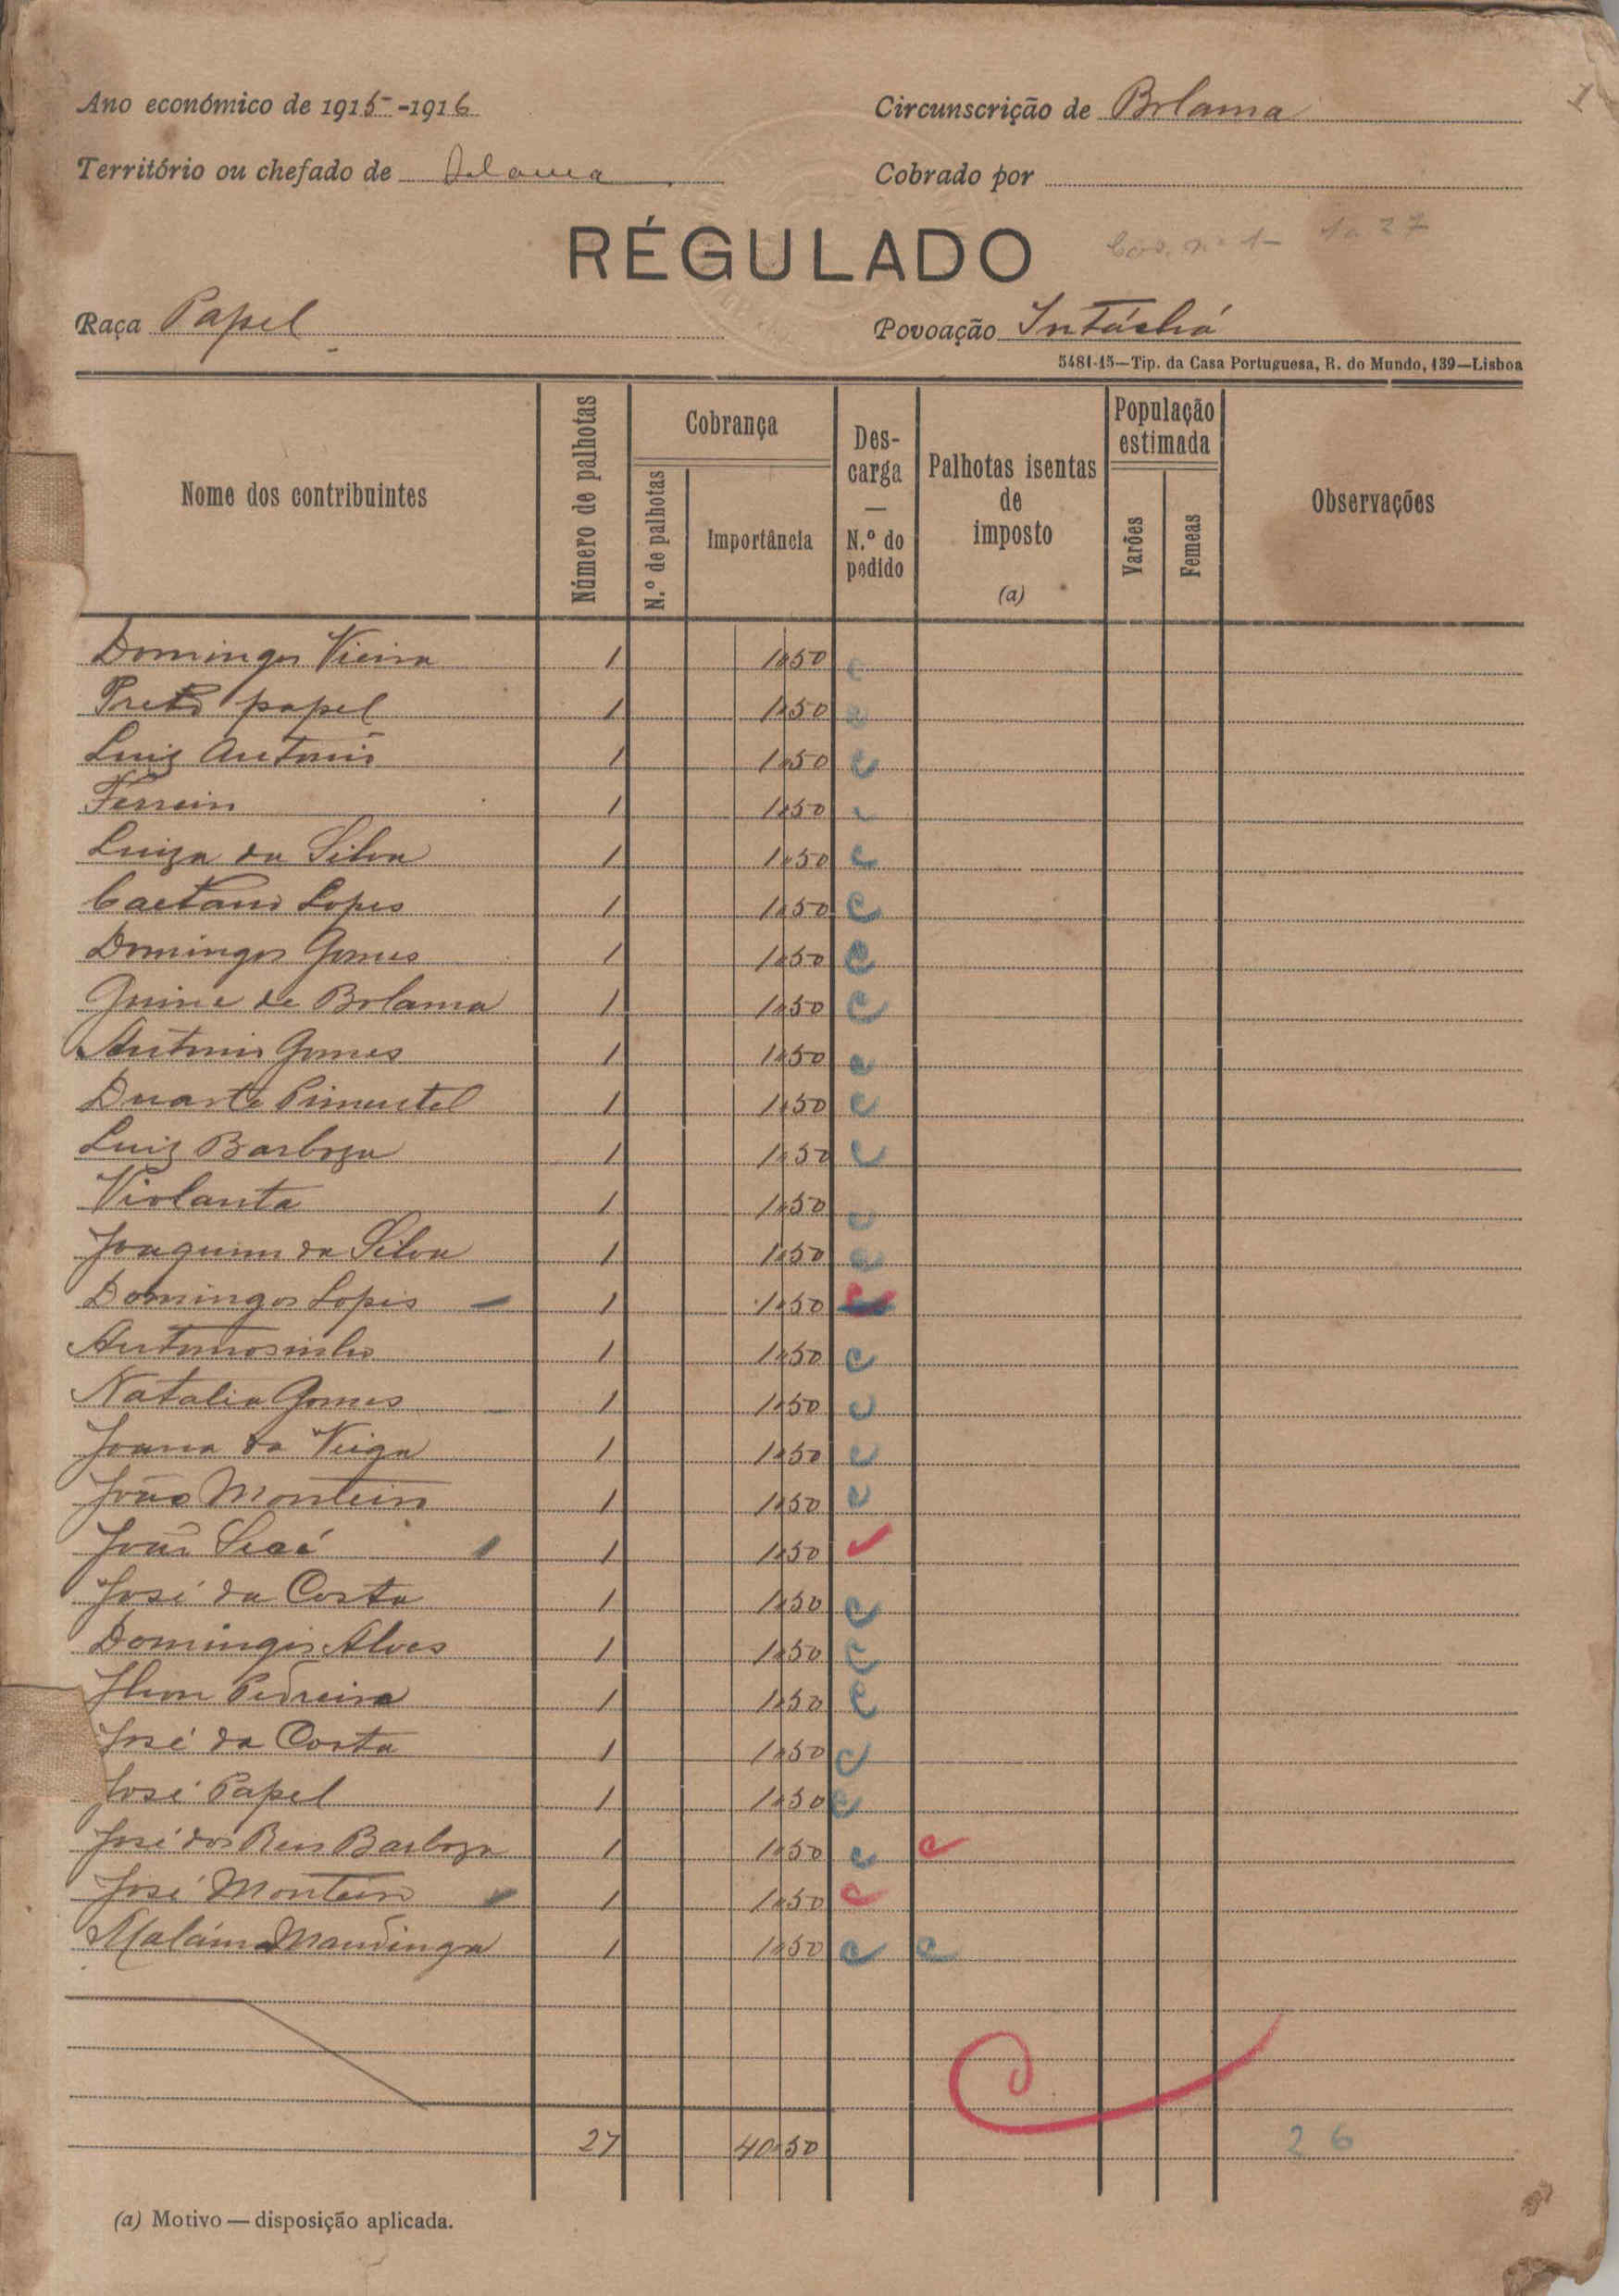 Ano económico de 1915-1916
Circunscrição de Bolama
1
Território ou chefado de Bolama
Cobrado por
RÉGULADO
1 a 27
Raça Papel
Povoação Intáchá
5481-15—Tip. da Casa Portuguesa, R. do Mundo, 139—Lisboa
Nome dos contribuintes
Número de palhotas
Cobrança
N.º de palhotas
Importância
Des-
carga
—
N.º do
pedido
Palhotas isentas
de
imposto
(a)
População
estimada
Varões
Femeas
Observações
Domingos Vieira 1 1$50 c
Preto papel 1 1$50 c
Luiz Antonio 1 1$50 c
Ferreira 1 1$50 c
Luiza da Silva 1 1$50 c
Caetano Lopes 1 1$50 c
Domingos Gomes 1 1$50 c
de Bolama 1 1$50 c
Antonio Gomes 1 1$50 c
Duarte Pimentel 1 1$50 c
Luiz Barboza 1 1$50 c
Violanta 1 1$50 c
Joaquim da Silva 1 1$50 c
Domingos Lopes 1 1$50 c
Antoniosinho 1 1$50 c
Natalia Gomes 1 1$50 c
Joana da Veiga 1 1$50 c
João Monteiro 1 1$50 c
João 1 1$50
José da Costa 1 1$50 c
Domingos Alves 1 1$50 c
Pedreira 1 1$50 c
José da Costa 1 1$50 c
José Papel 1 1$50 c
José dos Reis Barboza 1 1$50 c c
José Monteiro 1 1$50 c
Malám Mandinga 1 1$50 c c
27 40$50 26
(a) Motivo — disposição aplicada.